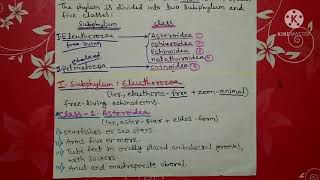 The phylum is divided into two subphylum and
five classes:
Subphylum class
I- Eleutherozoa → Asteroidea ①
free living ophiuroidea ②
Echinoidea ③
Stalked holothuroidea ④
II- Pelmatozoa → Crinoidea ⑤
I- Subphylum: Eleutherozoa
(Gr., eleutheros - free + zoon - animal)
free-living echinoderms.
Class-1- Asteroidea
(Gr., aster - star + eidos - form)
i) starfishes or sea stars.
ii) Arms five or more.
iii) Tube feet in orally placed ambulacral grooves,
with suckers.
iv) Anus and madreporite aboral.
KINEMASTER